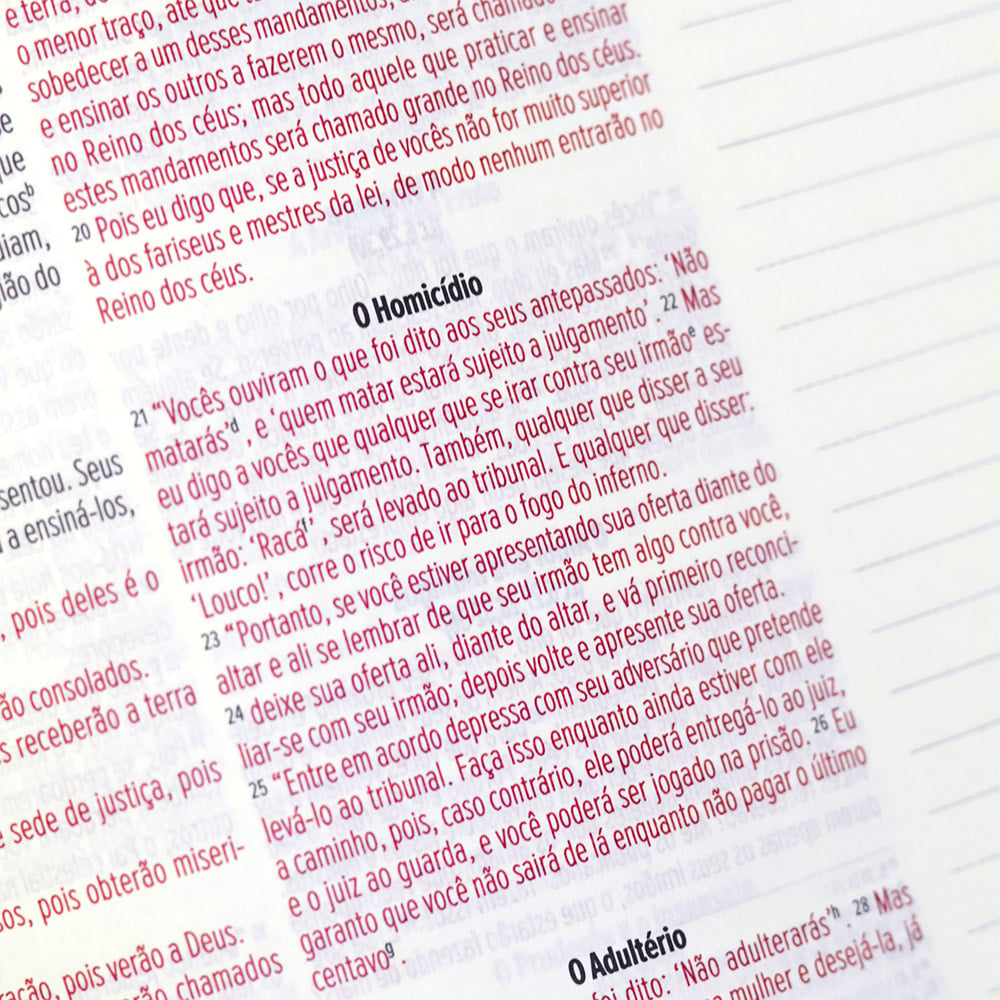 e
que
cosᵇ
diam,
ião do
sentou. Seus
a ensiná-los,
, pois deles é o
ão consolados.
s receberão a terra
e sede de justiça, pois
os, pois obterão miseri-
ração, pois verão a Deus.
rão chamados
e terra,
o menor traço, até que
sobedecer a um desses mandamentos,
e ensinar os outros a fazerem o mesmo, será chamado
no Reino dos céus; mas todo aquele que praticar e ensinar
estes mandamentos será chamado grande no Reino dos céus.
20 Pois eu digo que, se a justiça de vocês não for muito superior
à dos fariseus e mestres da lei, de modo nenhum entrarão no
Reino dos céus.
O Homicídio
21 “Vocês ouviram o que foi dito aos seus antepassados: ‘Não
matarás’ᵈ, e ‘quem matar estará sujeito a julgamento’. 22 Mas
eu digo a vocês que qualquer que se irar contra seu irmãoᵉ es-
tará sujeito a julgamento. Também, qualquer que disser a seu
irmão: ‘Racáᶠ’, será levado ao tribunal. E qualquer que disser:
‘Louco!’, corre o risco de ir para o fogo do inferno.
23 “Portanto, se você estiver apresentando sua oferta diante do
altar e ali se lembrar de que seu irmão tem algo contra você,
24 deixe sua oferta ali, diante do altar, e vá primeiro reconci-
liar-se com seu irmão; depois volte e apresente sua oferta.
25 “Entre em acordo depressa com seu adversário que pretende
levá-lo ao tribunal. Faça isso enquanto ainda estiver com ele
a caminho, pois, caso contrário, ele poderá entregá-lo ao juiz,
e o juiz ao guarda, e você poderá ser jogado na prisão. 26 Eu
garanto que você não sairá de lá enquanto não pagar o último
centavoᵍ.
O Adultério
foi dito: ‘Não adulterarás’ʰ. 28 Mas
mulher e desejá-la, já